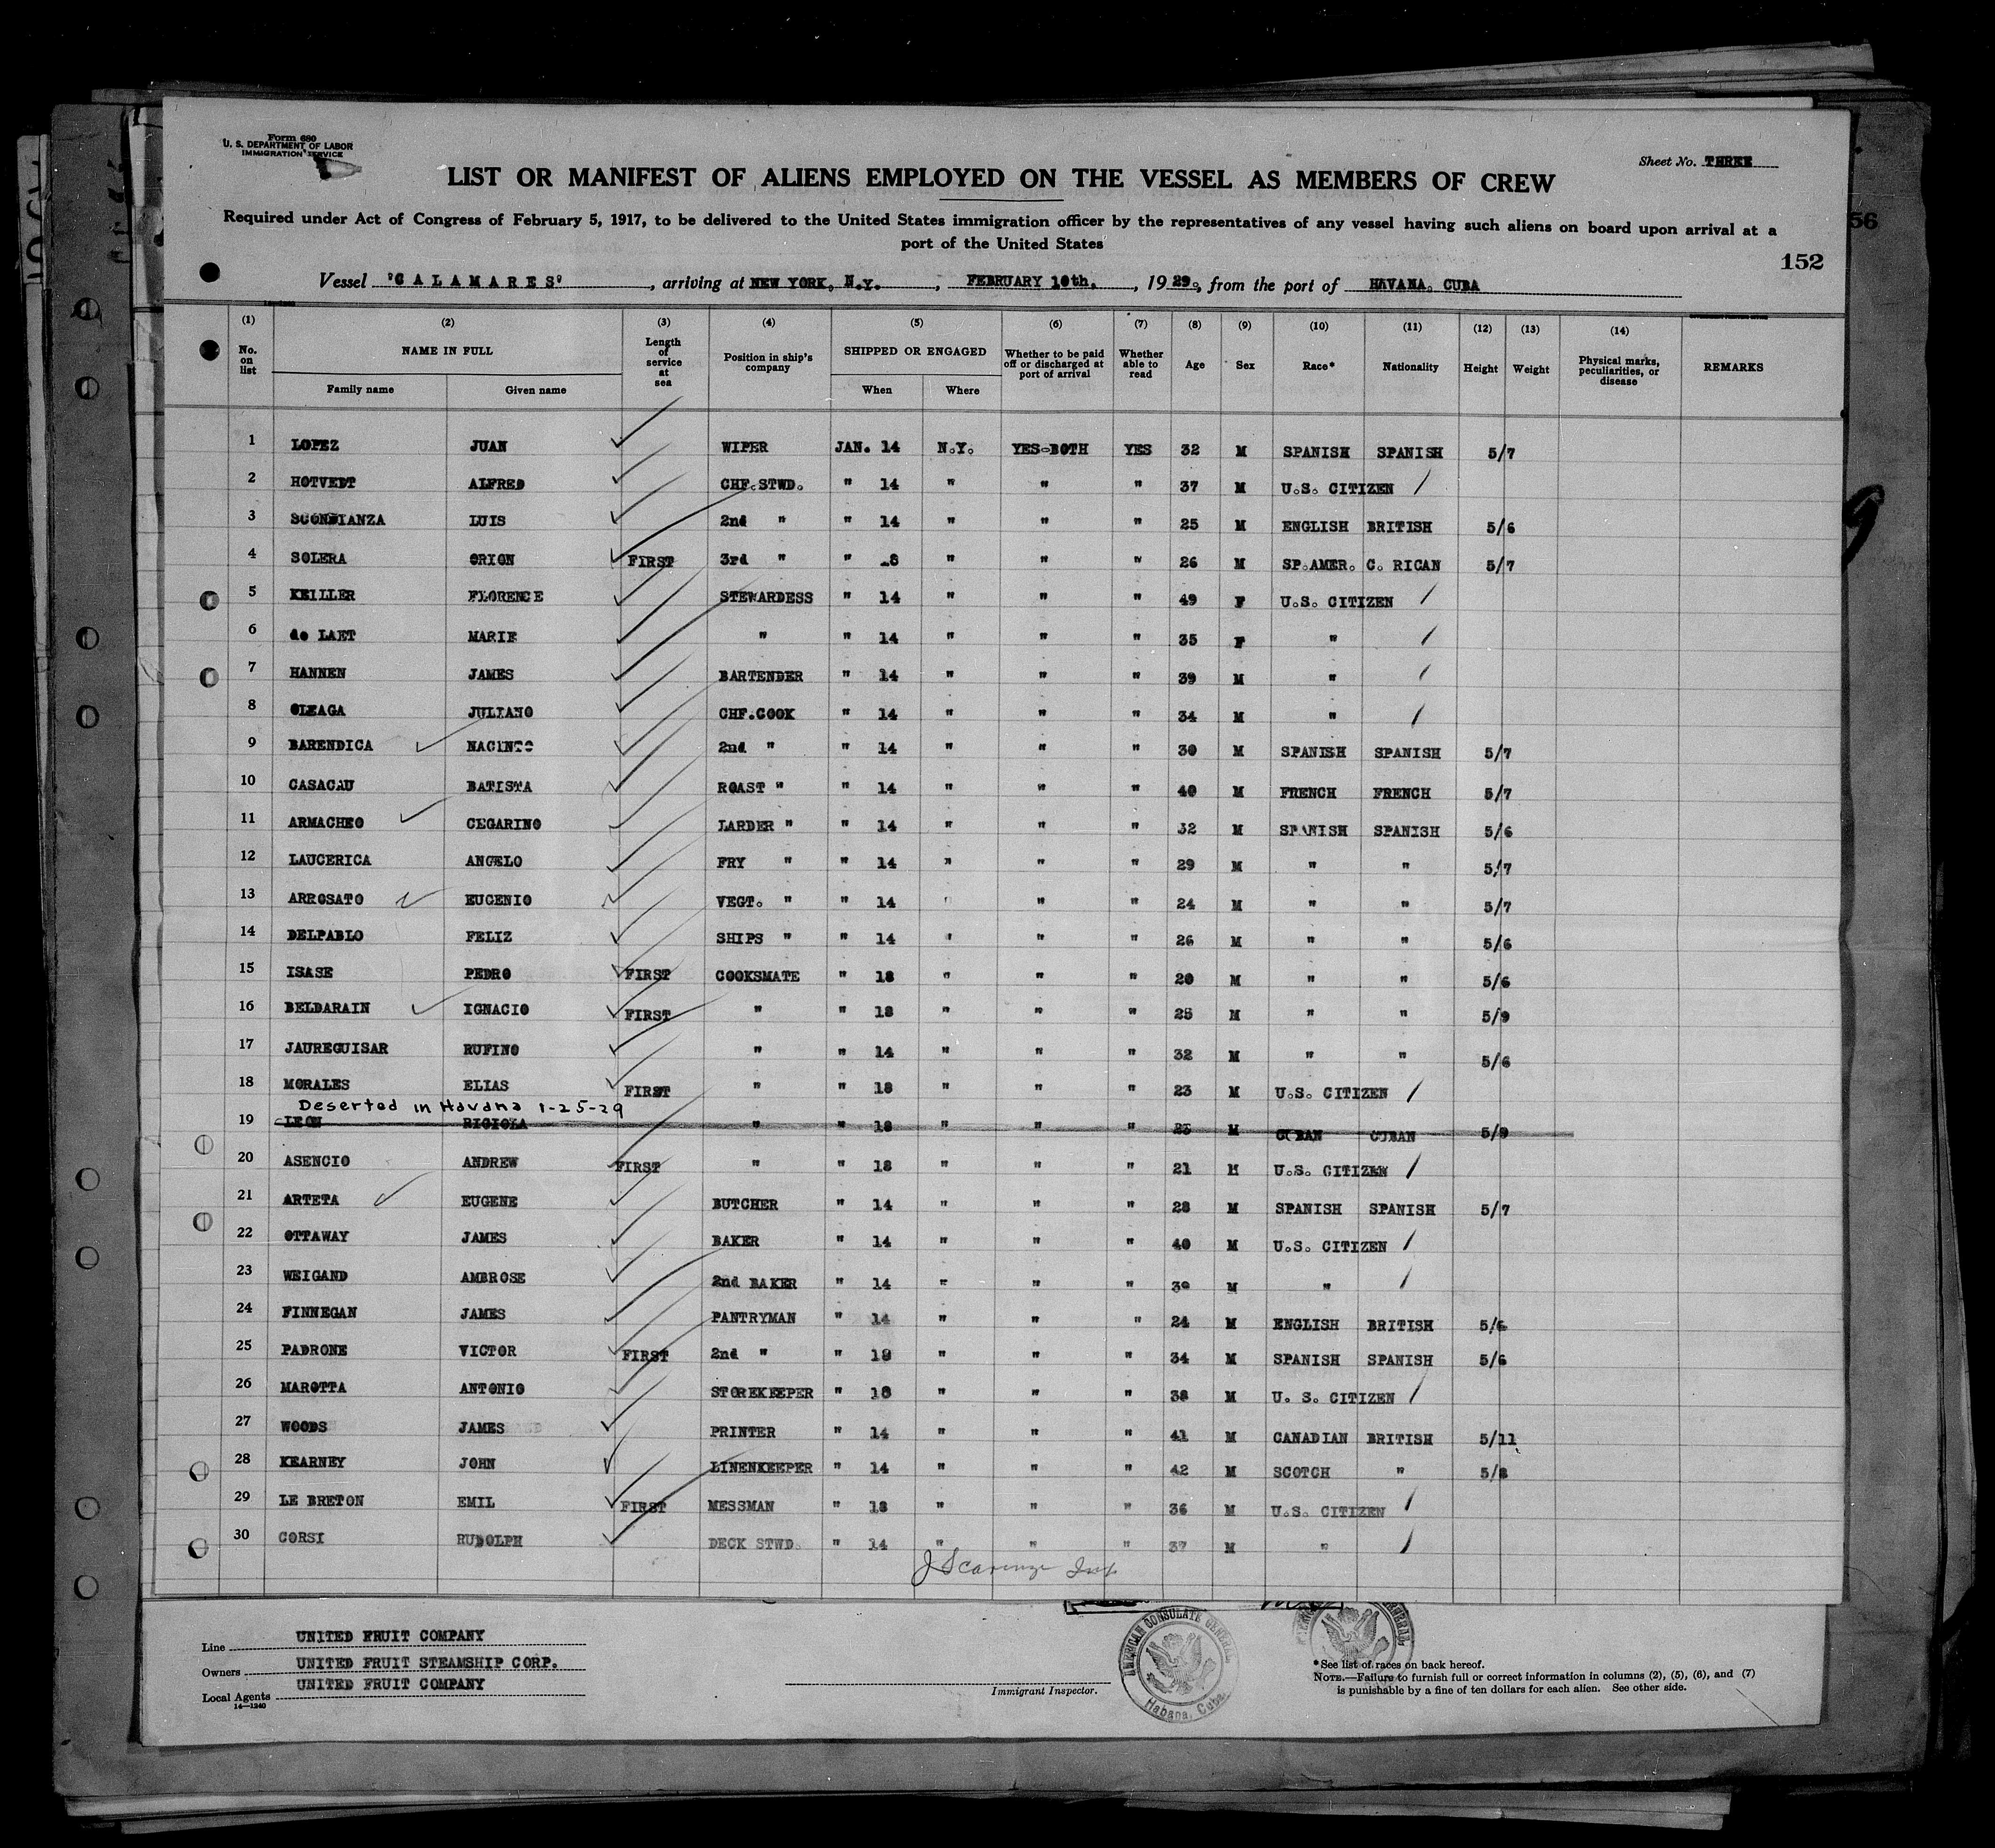 Form 680
U. S. DEPARTMENT OF LABOR
IMMIGRATION SERVICE
Sheet No. THREE
LIST OR MANIFEST OF ALIENS EMPLOYED ON THE VESSEL AS MEMBERS OF CREW
Required under Act of Congress of February 5, 1917, to be delivered to the United States immigration officer by the representatives of any vessel having such aliens on board upon arrival at a
port of the United States
56
152
Vessel "CALAMARES", arriving at NEW YORK, N.Y., FEBRUARY 10th, 1929, from the port of HAVANA, CUBA
(1) (2) (3) (4) (5) (6) (7) (8) (9) (10) (11) (12) (13) (14)
No. on list NAME IN FULL Length of service at sea Position in ship's company SHIPPED OR ENGAGED Whether to be paid off or discharged at port of arrival Whether able to read Age Sex Race* Nationality Height Weight Physical marks, peculiarities, or disease REMARKS
Family name Given name When Where
1 LOPEZ JUAN WIPER JAN. 14 N.Y. YES-BOTH YES 32 M SPANISH SPANISH 5/7
2 HOTVEDT ALFRED CHF.STWD. " 14 " " " 37 M U.S. CITIZEN
3 SCONDIANZA LUIS 2nd " " 14 " " " 25 M ENGLISH BRITISH 5/6
4 SOLERA ORION FIRST 3rd " " 8 " " " 26 M SP.AMER. C. RICAN 5/7
5 KEILLER FLORENCE STEWARDESS " 14 " " " 49 F U.S. CITIZEN
6 de LAET MARIE " " 14 " " " 35 F "
7 HANNEN JAMES BARTENDER " 14 " " " 39 M "
8 OLEAGA JULIANO CHF.COOK " 14 " " " 34 M "
9 BARENDICA NACINTO 2nd " " 14 " " " 30 M SPANISH SPANISH 5/7
10 CASACAU BATISTA ROAST " " 14 " " " 40 M FRENCH FRENCH 5/7
11 ARMACHEO CEGARINO LARDER " " 14 " " " 32 M SPANISH SPANISH 5/6
12 LAUCERICA ANGELO FRY " " 14 " " " 29 M " " 5/7
13 ARROSATO EUGENIO VEGT. " " 14 " " " 24 M " " 5/7
14 DELPABLO FELIZ SHIPS " " 14 " " " 26 M " " 5/6
15 ISASE PEDRO FIRST COOKSMATE " 18 " " " 20 M " " 5/6
16 BELDARAIN IGNACIO FIRST " " 18 " " " 25 M " " 5/9
17 JAUREGUISAR RUFINO " " 14 " " " 32 M " " 5/6
18 MORALES ELIAS FIRST " " 18 " " " 23 M U.S. CITIZEN
Deserted in Havana 1-25-29
19 LEON " " 18 " " " M CUBAN CUBAN 5/9
20 ASENCIO ANDREW FIRST " " 18 " " " 21 M U.S. CITIZEN
21 ARTETA EUGENE BUTCHER " 14 " " " 28 M SPANISH SPANISH 5/7
22 OTTAWAY JAMES BAKER " 14 " " " 40 M U.S. CITIZEN
23 WEIGAND AMBROSE 2nd BAKER " 14 " " " 39 M "
24 FINNEGAN JAMES PANTRYMAN " 14 " " " 24 M ENGLISH BRITISH 5/6
25 PADRONE VICTOR FIRST 2nd " " 18 " " " 34 M SPANISH SPANISH 5/6
26 MAROTTA ANTONIO STOREKEEPER " 18 " " " 38 M U. S. CITIZEN
27 WOODS JAMES PRINTER " 14 " " " 41 M CANADIAN BRITISH 5/11
28 KEARNEY JOHN LINENKEEPER " 14 " " " 42 M SCOTCH " 5/8
29 LE BRETON EMIL FIRST MESSMAN " 18 " " " 36 M U.S. CITIZEN
30 CORSI RUDOLPH DECK STWD. " 14 " " " 37 M "
Line UNITED FRUIT COMPANY
Owners UNITED FRUIT STEAMSHIP CORP.
Local Agents UNITED FRUIT COMPANY
14—1240
Immigrant Inspector.
AMERICAN CONSULATE GENERAL
Habana, Cuba.
*See list of races on back hereof.
NOTE.—Failure to furnish full or correct information in columns (2), (5), (6), and (7)
is punishable by a fine of ten dollars for each alien. See other side.